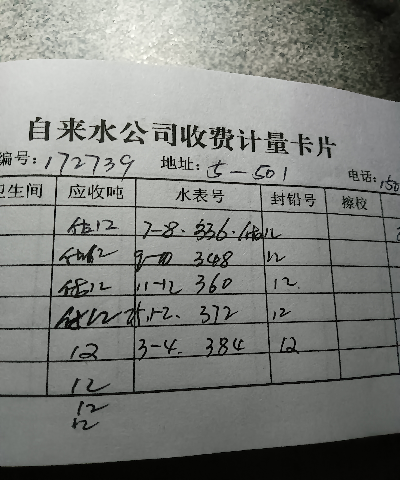 自来水公司收费计量卡片
编号:172739 地址:5-501 电话:150
卫生间 应收吨 水表号 封铅号 擦校
估12 7-8. 336. 12
12 9-10 348 12
估12 11-12 360 12.
12 25.1-2. 372 12
12 3-4. 384 12
12
12
12